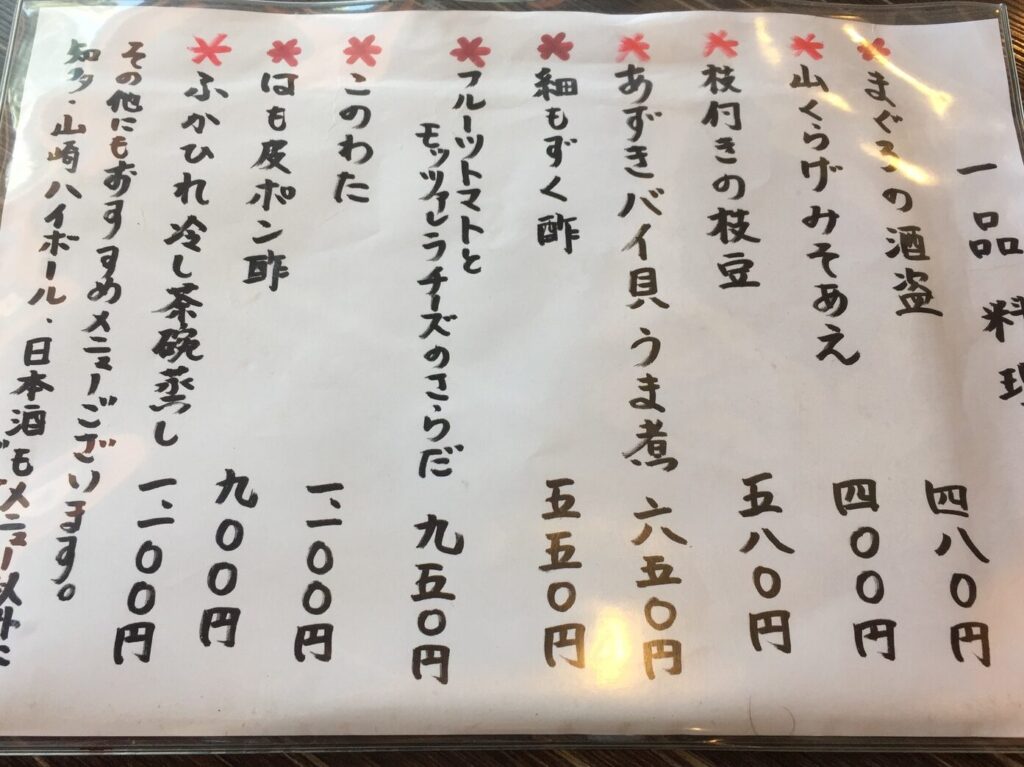 一品料理
まぐろの酒盗 四八〇円
山くらげみそあえ 四〇〇円
枝付きの枝豆 五八〇円
あずきバイ貝うま煮 六五〇円
細もずく酢 五五〇円
フルーツトマトと
モッツァレラチーズのさらだ 九五〇円
このわた 一、一〇〇円
はも皮ポン酢 九〇〇円
ふかひれ冷し茶碗蒸し 一、一〇〇円
その他にもおすすめメニューございます。
知多・山崎ハイボール、日本酒もメニュー以外に